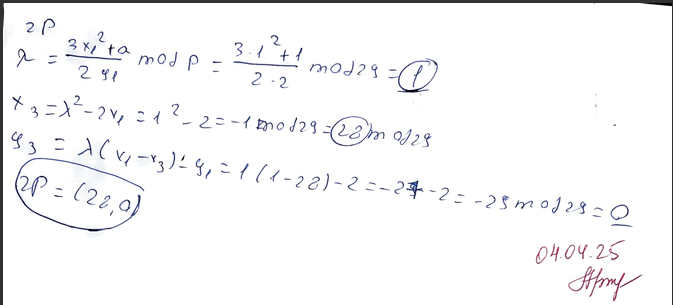 2P
λ = (3x₁²+a)/(2y₁) mod P = (3·1²+1)/(2·2) mod 29 = 1
x₃ = λ² - 2x₁ = 1² - 2 = -1 mod 29 = 28 mod 29
y₃ = λ(x₁-x₃) - y₁ = 1(1-28) - 2 = -27 - 2 = -29 mod 29 = 0
2P = (28, 0)
04.04.25